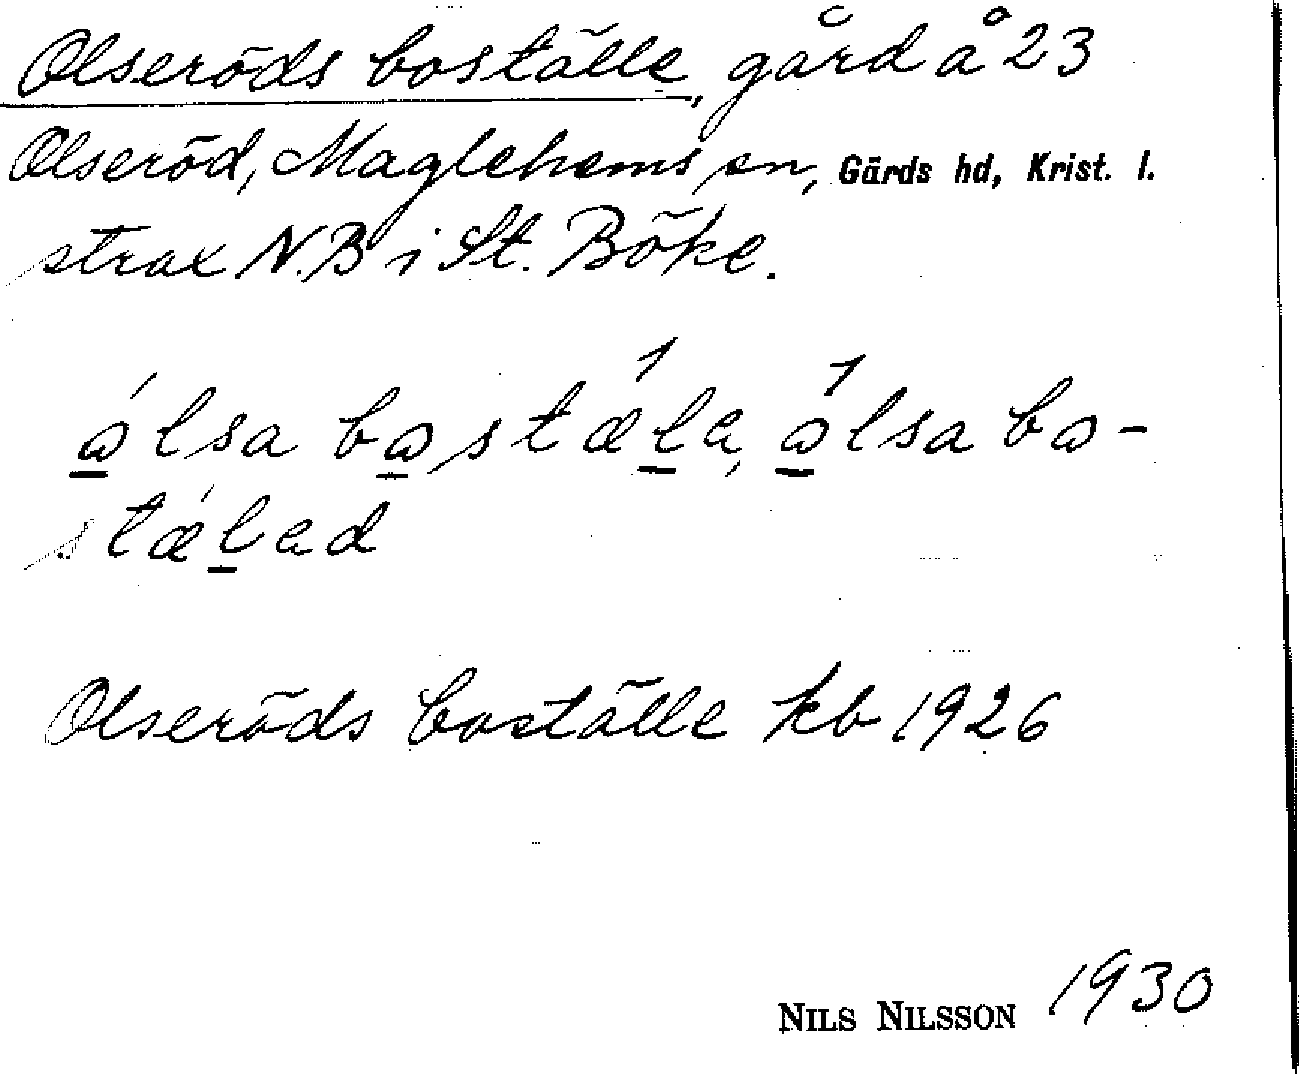 Olseröds boställe, gård å 23
Olseröd, Maglehems sn, Gärds hd, Krist. l.
strax N.B i St. Böke.
ålsa bostæla, ålsa bo-
stælad
Olseröds boställe kb 1926
NILS NILSSON 1930